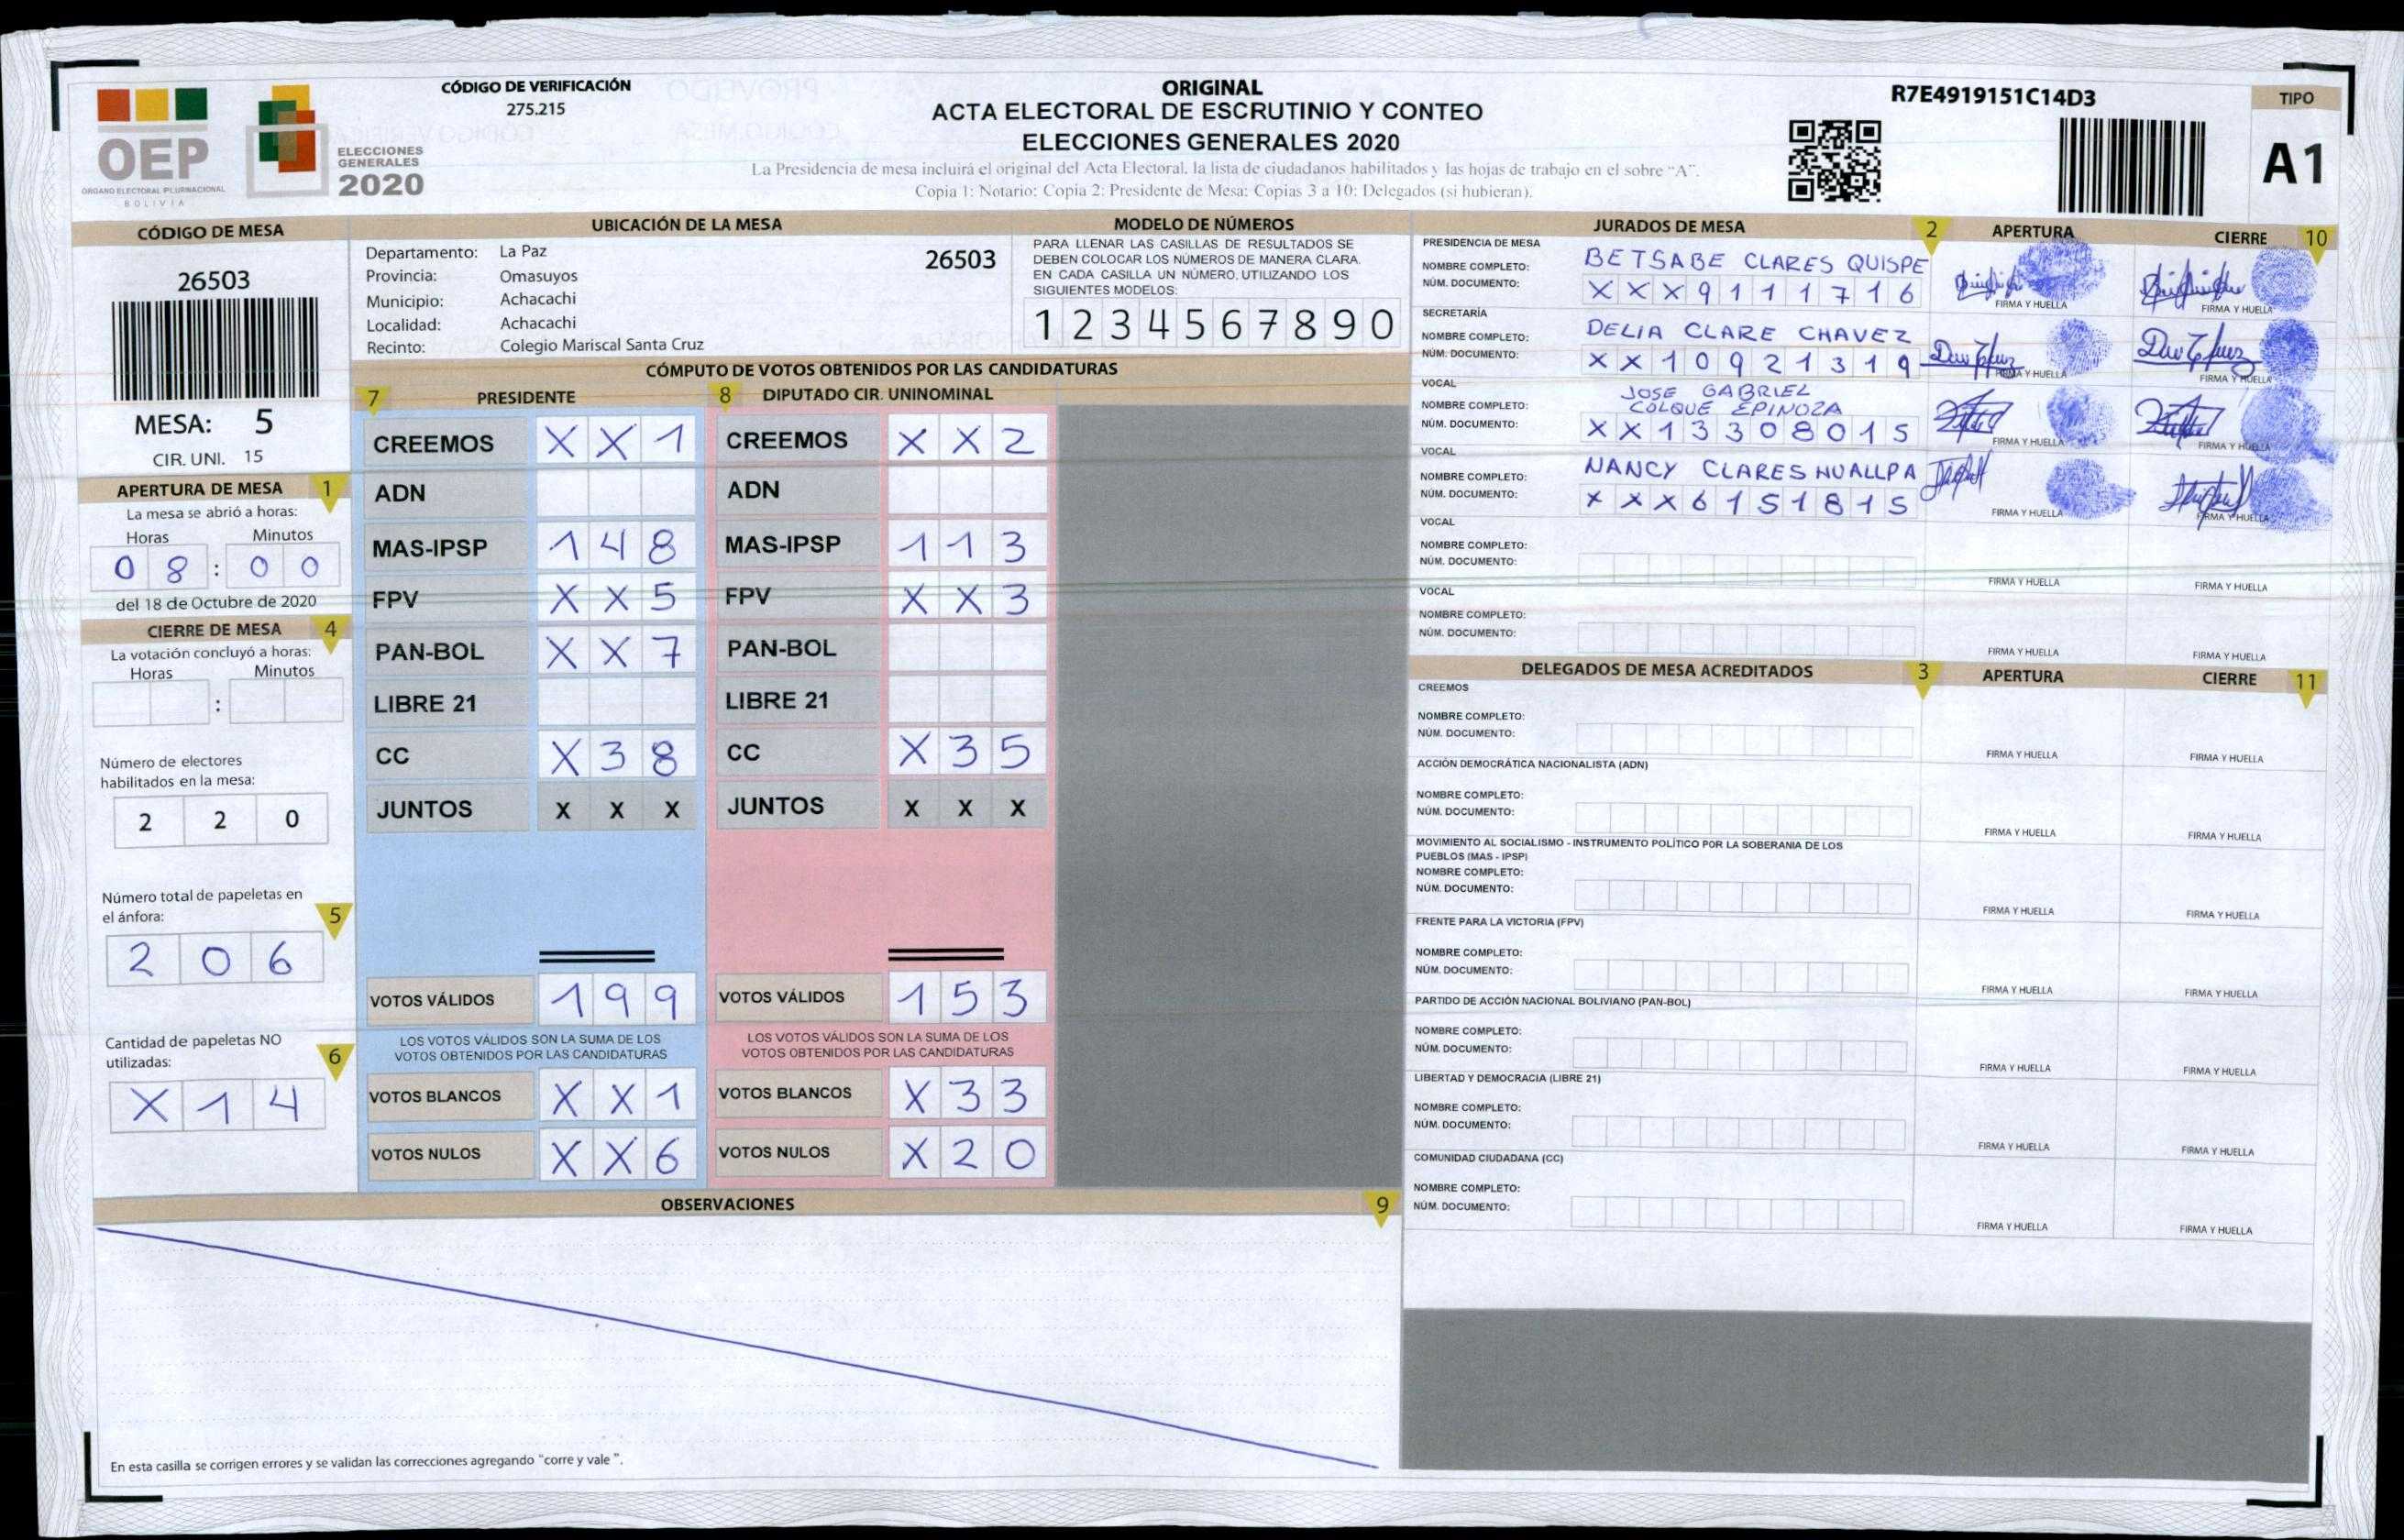 CÓDIGO DE VERIFICACIÓN
275.215
OEP
ÓRGANO ELECTORAL PLURINACIONAL
BOLIVIA
ELECCIONES
GENERALES
2020
ORIGINAL
ACTA ELECTORAL DE ESCRUTINIO Y CONTEO
ELECCIONES GENERALES 2020
La Presidencia de mesa incluirá el original del Acta Electoral, la lista de ciudadanos habilitados y las hojas de trabajo en el sobre "A".
Copia 1: Notario; Copia 2: Presidente de Mesa; Copias 3 a 10: Delegados (si hubieran).
R7E4919151C14D3
TIPO
A1
CÓDIGO DE MESA
26503
MESA: 5
CIR. UNI. 15
UBICACIÓN DE LA MESA
Departamento: La Paz
Provincia: Omasuyos
Municipio: Achacachi
Localidad: Achacachi
Recinto: Colegio Mariscal Santa Cruz
26503
MODELO DE NÚMEROS
PARA LLENAR LAS CASILLAS DE RESULTADOS SE
DEBEN COLOCAR LOS NÚMEROS DE MANERA CLARA.
EN CADA CASILLA UN NÚMERO, UTILIZANDO LOS
SIGUIENTES MODELOS:
1 2 3 4 5 6 7 8 9 0
APERTURA DE MESA 1
La mesa se abrió a horas:
Horas Minutos
0 8 : 0 0
del 18 de Octubre de 2020
CIERRE DE MESA 4
La votación concluyó a horas:
Horas Minutos
:
Número de electores
habilitados en la mesa:
2 2 0
Número total de papeletas en
el ánfora: 5
2 0 6
Cantidad de papeletas NO
utilizadas: 6
X 1 4
CÓMPUTO DE VOTOS OBTENIDOS POR LAS CANDIDATURAS
7 PRESIDENTE
CREEMOS X X 1
ADN
MAS-IPSP 1 4 8
FPV X X 5
PAN-BOL X X 7
LIBRE 21
CC X 3 8
JUNTOS X X X
VOTOS VÁLIDOS 1 9 9
LOS VOTOS VÁLIDOS SON LA SUMA DE LOS
VOTOS OBTENIDOS POR LAS CANDIDATURAS
VOTOS BLANCOS X X 1
VOTOS NULOS X X 6
8 DIPUTADO CIR. UNINOMINAL
CREEMOS X X 2
ADN
MAS-IPSP 1 1 3
FPV X X 3
PAN-BOL
LIBRE 21
CC X 3 5
JUNTOS X X X
VOTOS VÁLIDOS 1 5 3
LOS VOTOS VÁLIDOS SON LA SUMA DE LOS
VOTOS OBTENIDOS POR LAS CANDIDATURAS
VOTOS BLANCOS X 3 3
VOTOS NULOS X 2 0
OBSERVACIONES 9
En esta casilla se corrigen errores y se validan las correcciones agregando "corre y vale".
JURADOS DE MESA 2 APERTURA CIERRE 10
PRESIDENCIA DE MESA
NOMBRE COMPLETO: BETSABE CLARES QUISPE
NÚM. DOCUMENTO: X X X 9 1 1 1 7 1 6
FIRMA Y HUELLA FIRMA Y HUELLA
SECRETARÍA
NOMBRE COMPLETO: DELIA CLARE CHAVEZ
NÚM. DOCUMENTO: X X 1 0 9 2 1 3 1 9
FIRMA Y HUELLA FIRMA Y HUELLA
VOCAL
NOMBRE COMPLETO: JOSE GABRIEL
COLQUE EPINOZA
NÚM. DOCUMENTO: X X 1 3 3 0 8 0 1 5
FIRMA Y HUELLA FIRMA Y HUELLA
VOCAL
NOMBRE COMPLETO: NANCY CLARES HUALLPA
NÚM. DOCUMENTO: X X X 6 1 5 1 8 1 5
FIRMA Y HUELLA FIRMA Y HUELLA
VOCAL
NOMBRE COMPLETO:
NÚM. DOCUMENTO:
FIRMA Y HUELLA FIRMA Y HUELLA
VOCAL
NOMBRE COMPLETO:
NÚM. DOCUMENTO:
FIRMA Y HUELLA FIRMA Y HUELLA
DELEGADOS DE MESA ACREDITADOS 3 APERTURA CIERRE 11
CREEMOS
NOMBRE COMPLETO:
NÚM. DOCUMENTO:
FIRMA Y HUELLA FIRMA Y HUELLA
ACCIÓN DEMOCRÁTICA NACIONALISTA (ADN)
NOMBRE COMPLETO:
NÚM. DOCUMENTO:
FIRMA Y HUELLA FIRMA Y HUELLA
MOVIMIENTO AL SOCIALISMO - INSTRUMENTO POLÍTICO POR LA SOBERANIA DE LOS
PUEBLOS (MAS - IPSP)
NOMBRE COMPLETO:
NÚM. DOCUMENTO:
FIRMA Y HUELLA FIRMA Y HUELLA
FRENTE PARA LA VICTORIA (FPV)
NOMBRE COMPLETO:
NÚM. DOCUMENTO:
FIRMA Y HUELLA FIRMA Y HUELLA
PARTIDO DE ACCIÓN NACIONAL BOLIVIANO (PAN-BOL)
NOMBRE COMPLETO:
NÚM. DOCUMENTO:
FIRMA Y HUELLA FIRMA Y HUELLA
LIBERTAD Y DEMOCRACIA (LIBRE 21)
NOMBRE COMPLETO:
NÚM. DOCUMENTO:
FIRMA Y HUELLA FIRMA Y HUELLA
COMUNIDAD CIUDADANA (CC)
NOMBRE COMPLETO:
NÚM. DOCUMENTO:
FIRMA Y HUELLA FIRMA Y HUELLA